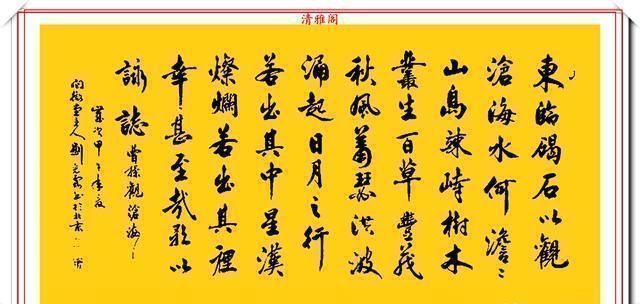 清雅阁
東臨碣石以觀
滄海水何澹〻
山島竦峙樹木
叢生百草豐茂
秋風蕭瑟洪波
涌起日月之行
若出其中星漢
燦爛若出其裡
幸甚至哉歌以
詠誌 曹操觀滄海
歲次甲午年夏
主人劉書於北京